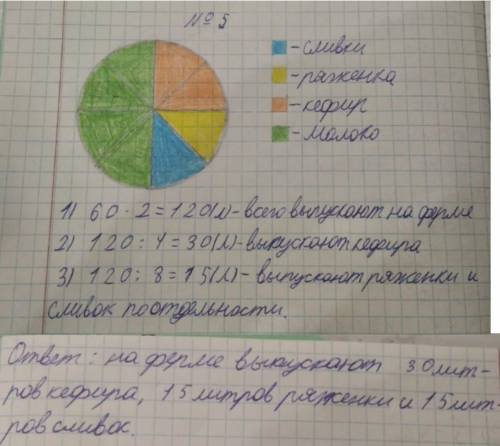 № 5
- сливки
- ряженка
- кефир
- молоко
1) 60 · 2 = 120(л) - всего выпускают на ферме
2) 120 : 4 = 30(л) - выпускают кефира
3) 120 : 8 = 15(л) - выпускают ряженки и
сливок по отдельности.
Ответ: на ферме выпускают 30 лит-
ров кефира, 15 литров ряженки и 15 лит-
ров сливок.